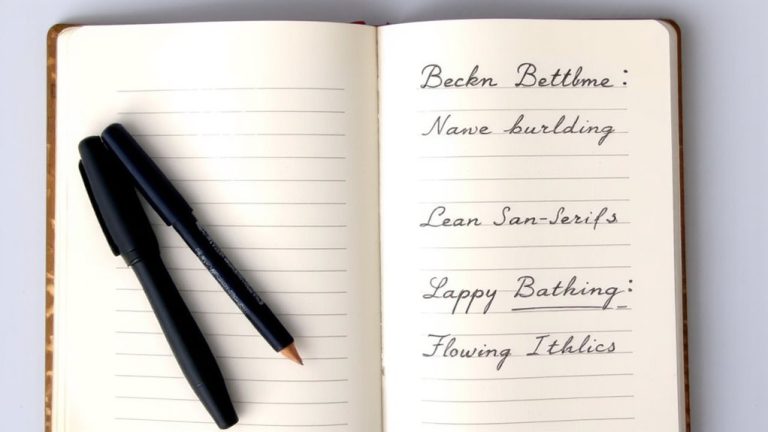 Beckn Bettbme:
Nawe burlding
Lean San-Serifs
Lappy Bathing:
Flowing Ithlics